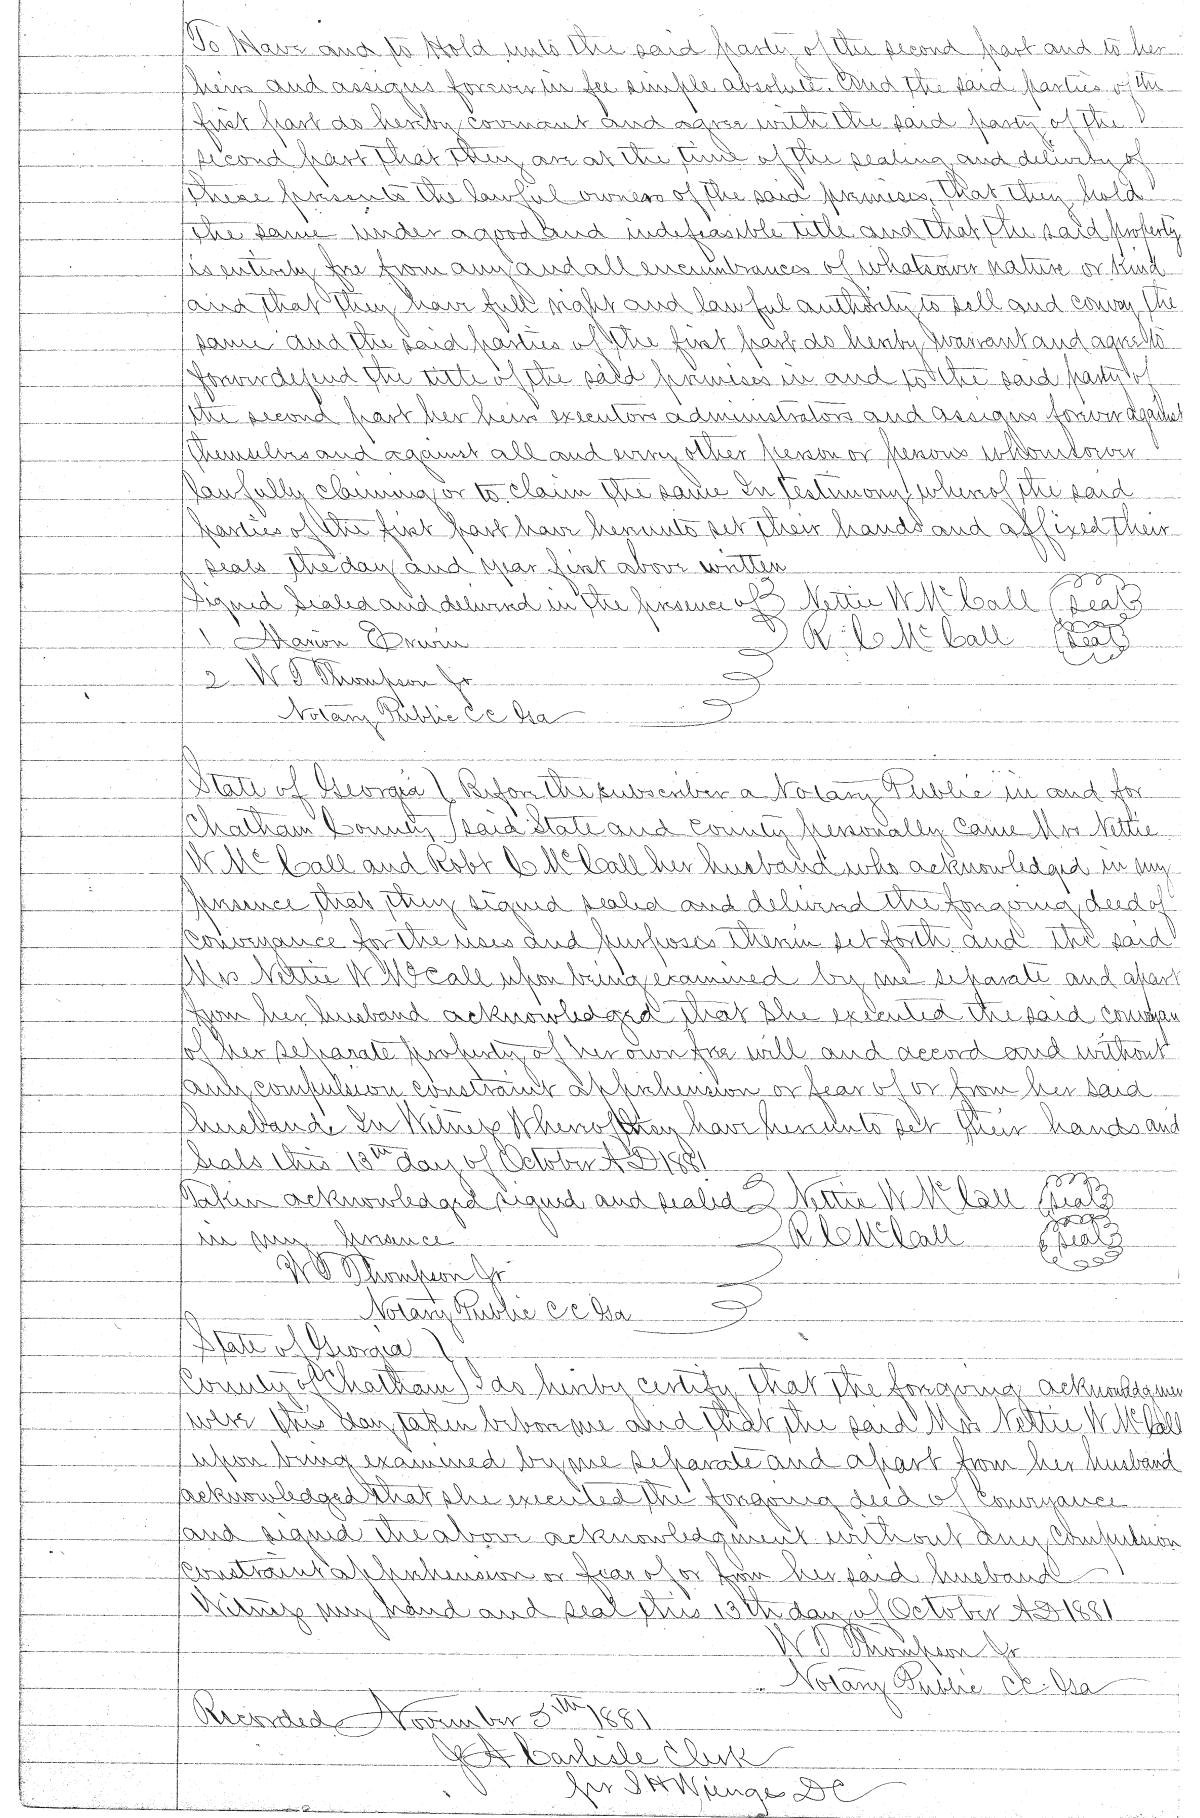 To Have and to Hold unto the said party of the second part and to her
heirs and assigns forever in fee simple absolute. And the said parties of the
first part do hereby covenant and agree with the said party of the
second part that they are at the time of the sealing and delivery of
these presents the lawful owners of the said premises, that they hold
the same under a good and indefeasible title and that the said property
is entirely free from any and all encumbrances of whatsoever nature or kind
and that they have full right and lawful authority to sell and convey the
same and the said parties of the first part do hereby warrant and agree to
forever defend the title of the said premises in and to the said party of
the second part her heirs executors administrators and assigns forever against
themselves and against all and every other person or persons whomsoever
lawfully claiming or to claim the same In testimony whereof the said
parties of the first part have hereunto set their hands and affixed their
seals the day and year first above written
Signed Sealed and delivered in the presence of Nettie W McCall (Seal)
1 Marion Erwin R C McCall (Seal)
2 W T Thompson Jr
Notary Public C C Ga
State of Georgia } Before the subscriber a Notary Public in and for
Chatham County } said State and county personally came Mrs Nettie
W McCall and Robt C McCall her husband who acknowledged in my
presence that they signed sealed and delivered the foregoing deed of
conveyance for the uses and purposes therein set forth and the said
Mrs Nettie W McCall upon being examined by me separate and apart
from her husband acknowledged that she executed the said conveyan
of her separate property of her own free will and accord and without
any compulsion constraint apprehension or fear of or from her said
husband. In Witness Whereof they have hereunto set their hands and
seals this 13th day of October AD 1881
Taken acknowledged signed and sealed Nettie W McCall (Seal)
in my presence R C McCall (Seal)
W T Thompson Jr
Notary Public C C Ga
State of Georgia }
County of Chatham } I do hereby certify that the foregoing acknowledgmen
were this day taken before me and that the said Mrs Nettie W McCall
upon being examined by me separate and apart from her husband
acknowledged that she executed the foregoing deed of conveyance
and signed the above acknowledgment without any compulsion
constraint apprehension or fear of or from her said husband
Witness my hand and seal this 13th day of October AD 1881
W T Thompson Jr
Notary Public C C Ga
Recorded November 5th 1881
J A Carlisle Clerk
per J H Wienges D C